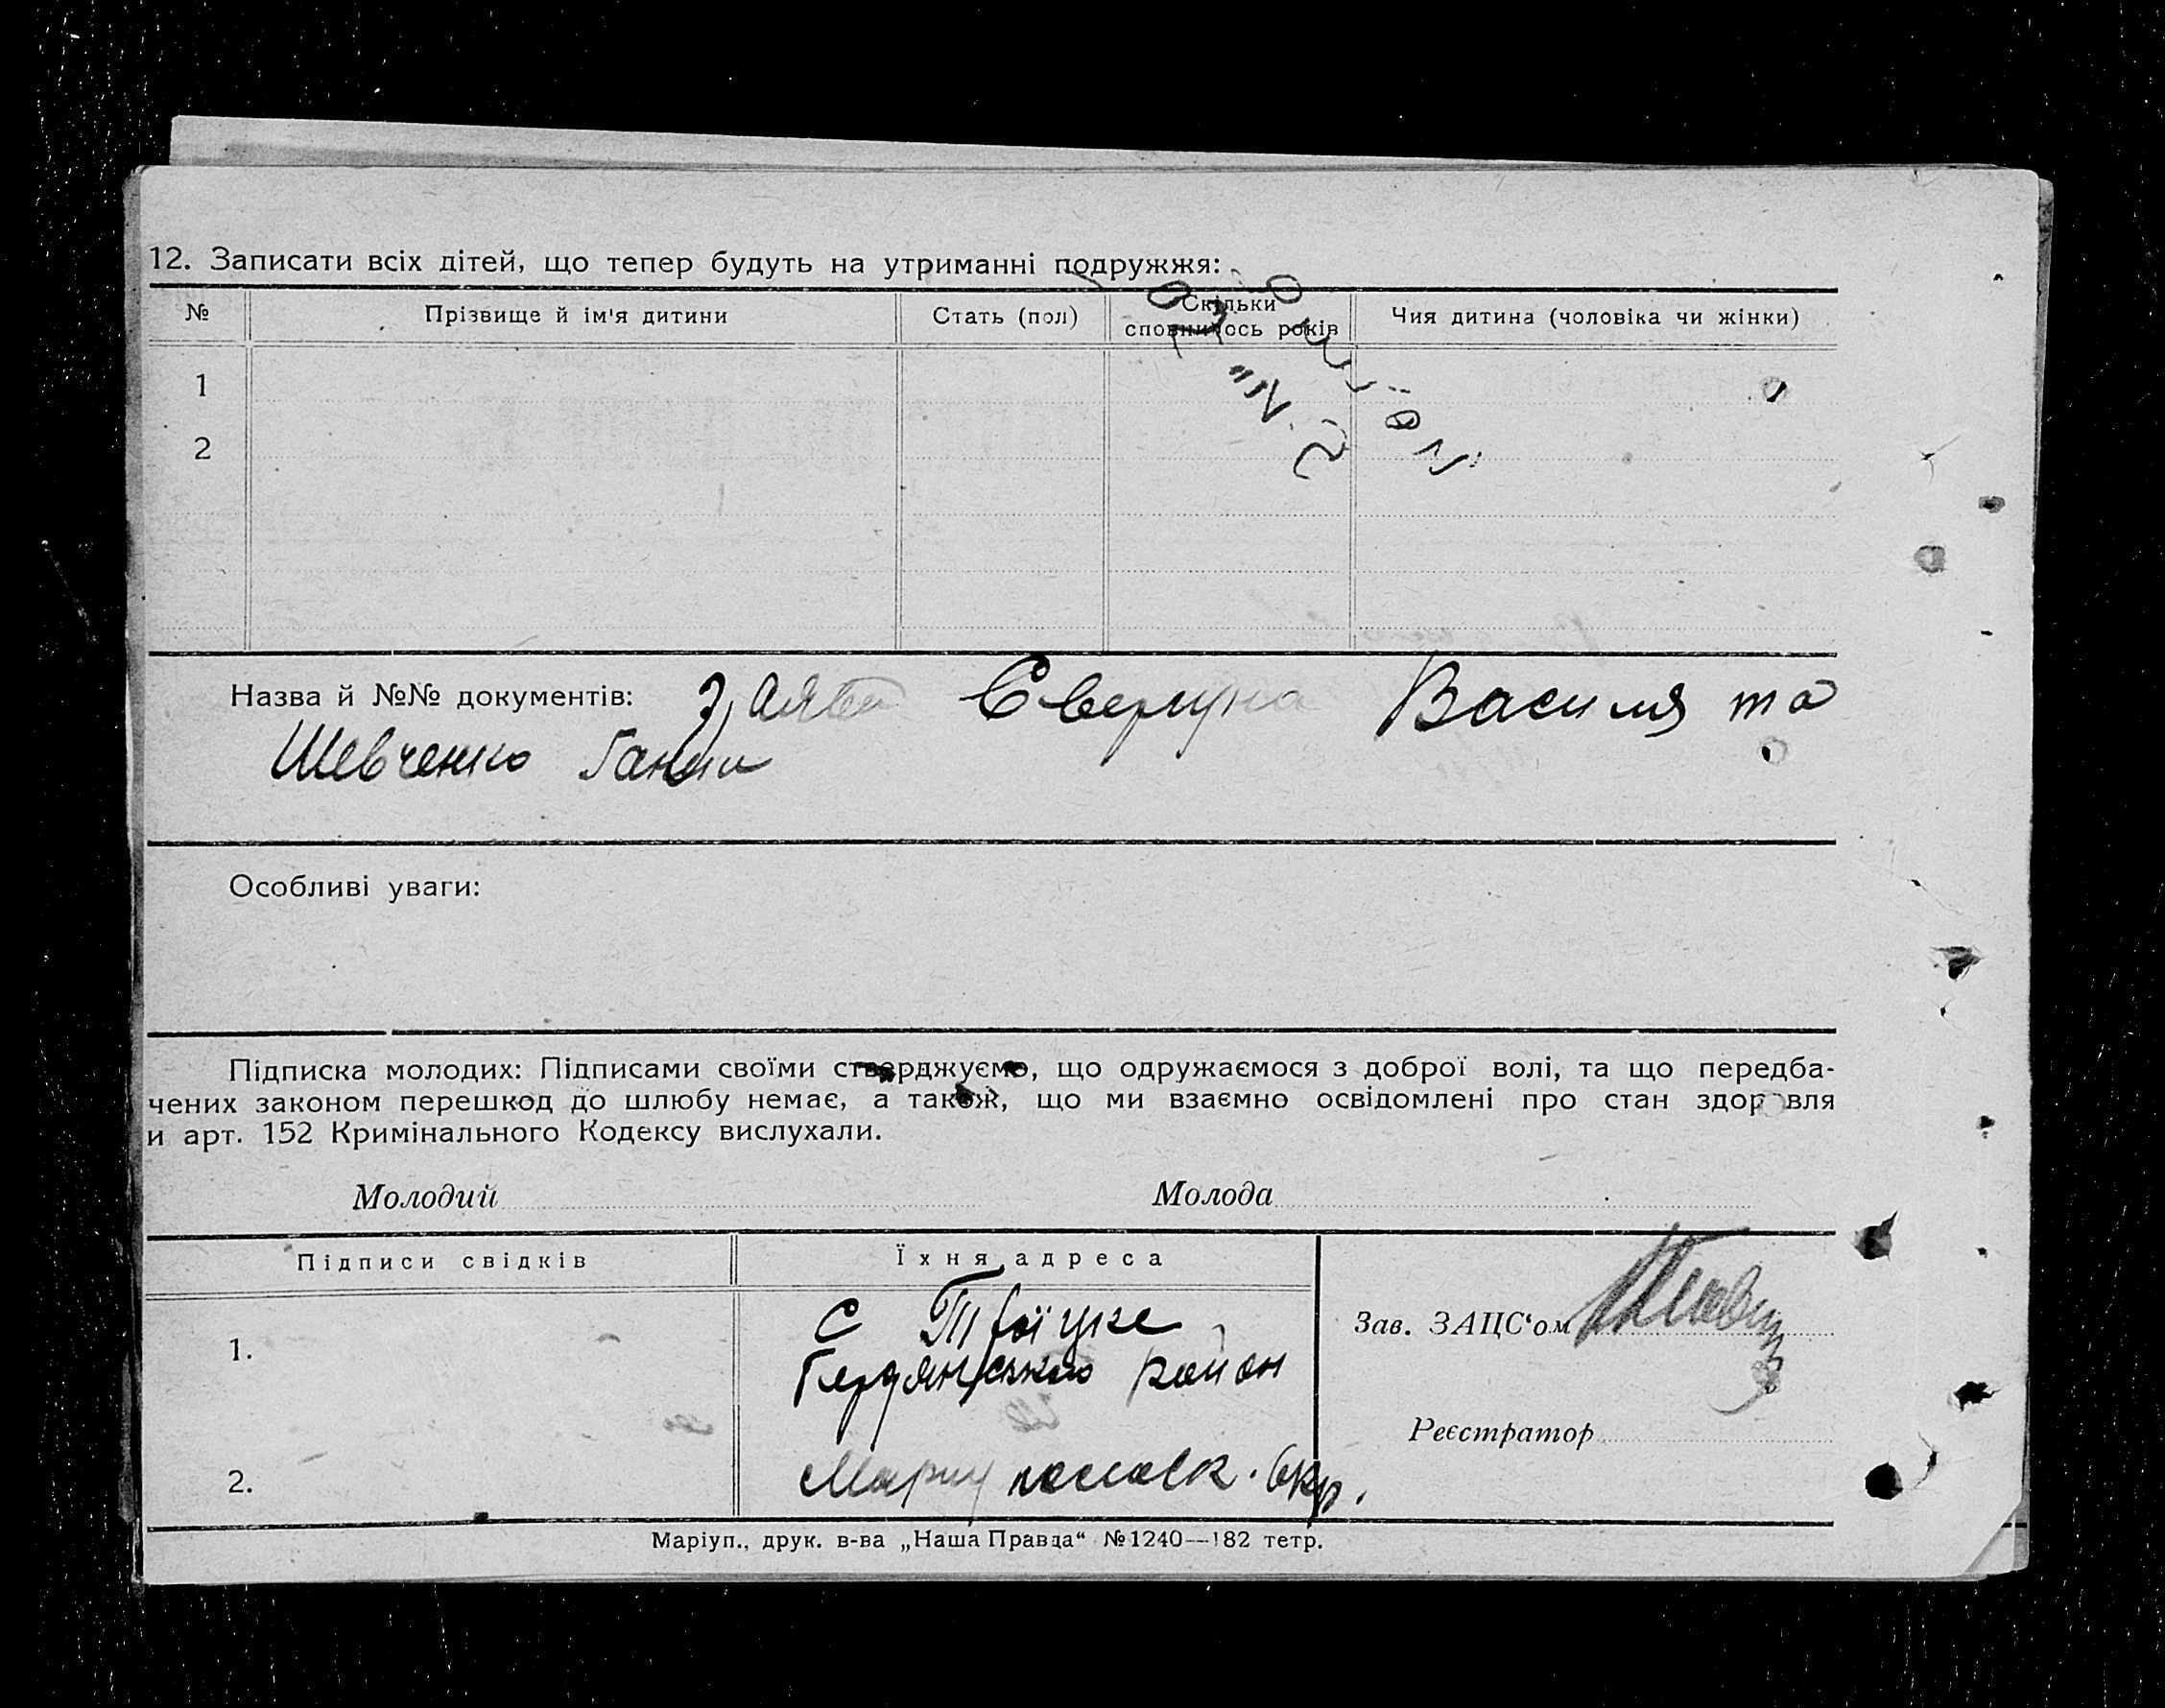 12. Записати всіх дітей, що тепер будуть на утриманні подружжя:
№ Прізвище й ім'я дитини Стать (пол) Скільки сповнилось років Чия дитина (чоловіка чи жінки)
1
2
Назва й №№ документів: Заява Сверчуна Василя та
Шевченко Ганни
Особливі уваги:
Підписка молодих: Підписами своїми стверджуємо, що одружаємося з доброї волі, та що передба-
чених законом перешкод до шлюбу немає, а також, що ми взаємно освідомлені про стан здоровля
и арт. 152 Кримінального Кодексу вислухали.
Молодий Молода
Підписи свідків Їхня адреса
С Троїцке
Зав. ЗАЦС'ом
1.
Бердянського район
Реєстратор
2. Мариупольськ. Окр.
Маріуп., друк. в-ва „Наша Правда“ №1240—182 тетр.